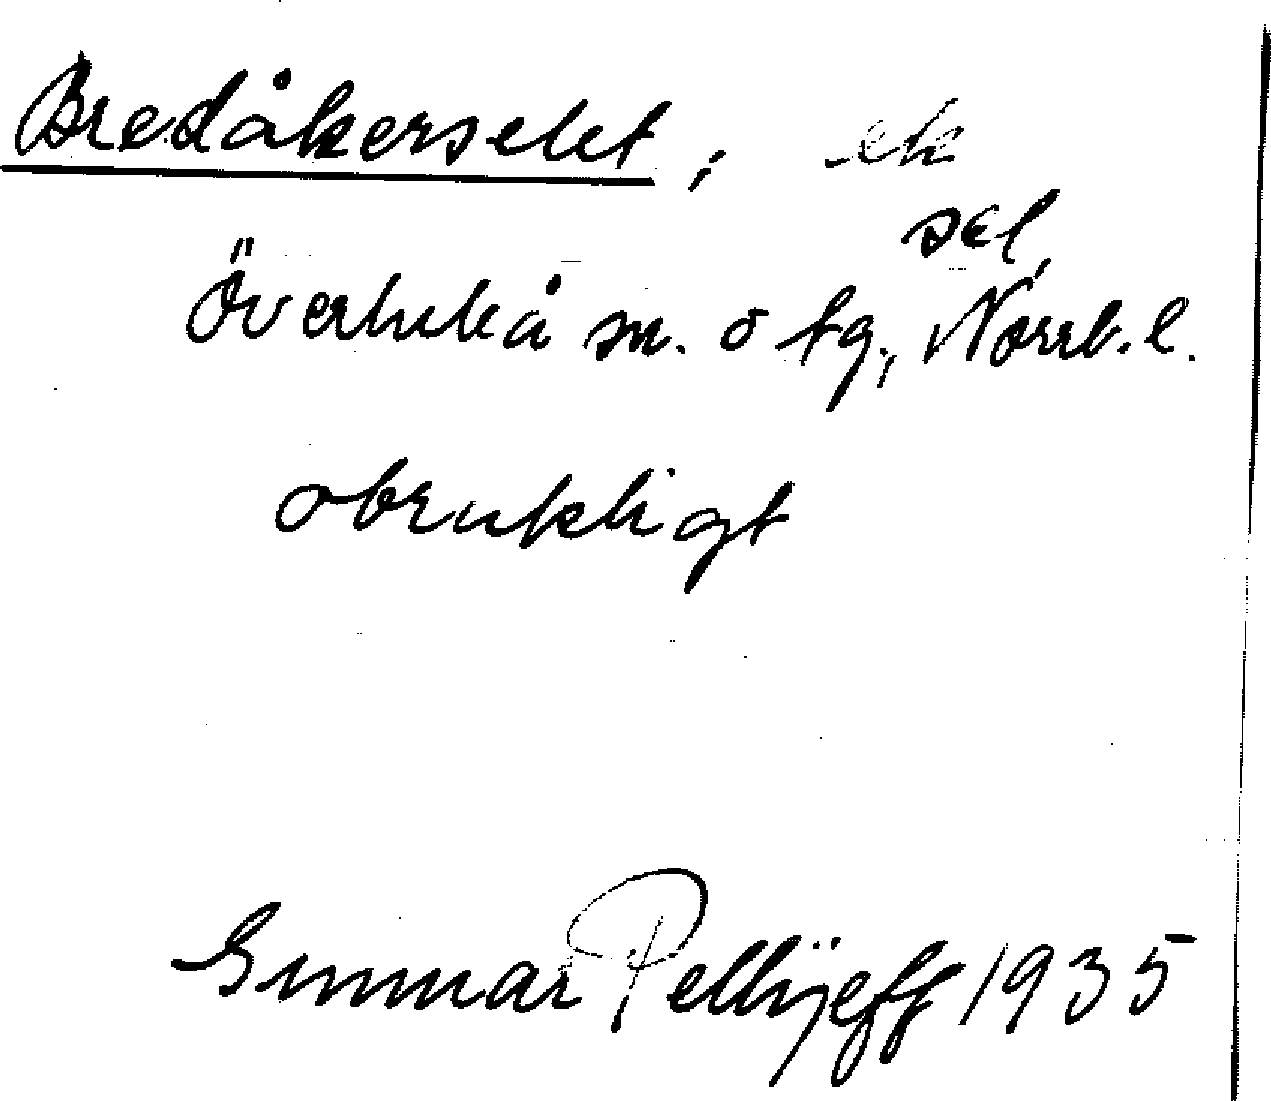 Bredåkerselet, ek
sel,
Överluleå sn. o tg., Norrb. l.
obrukligt
Gunnar Pellijeff 1935